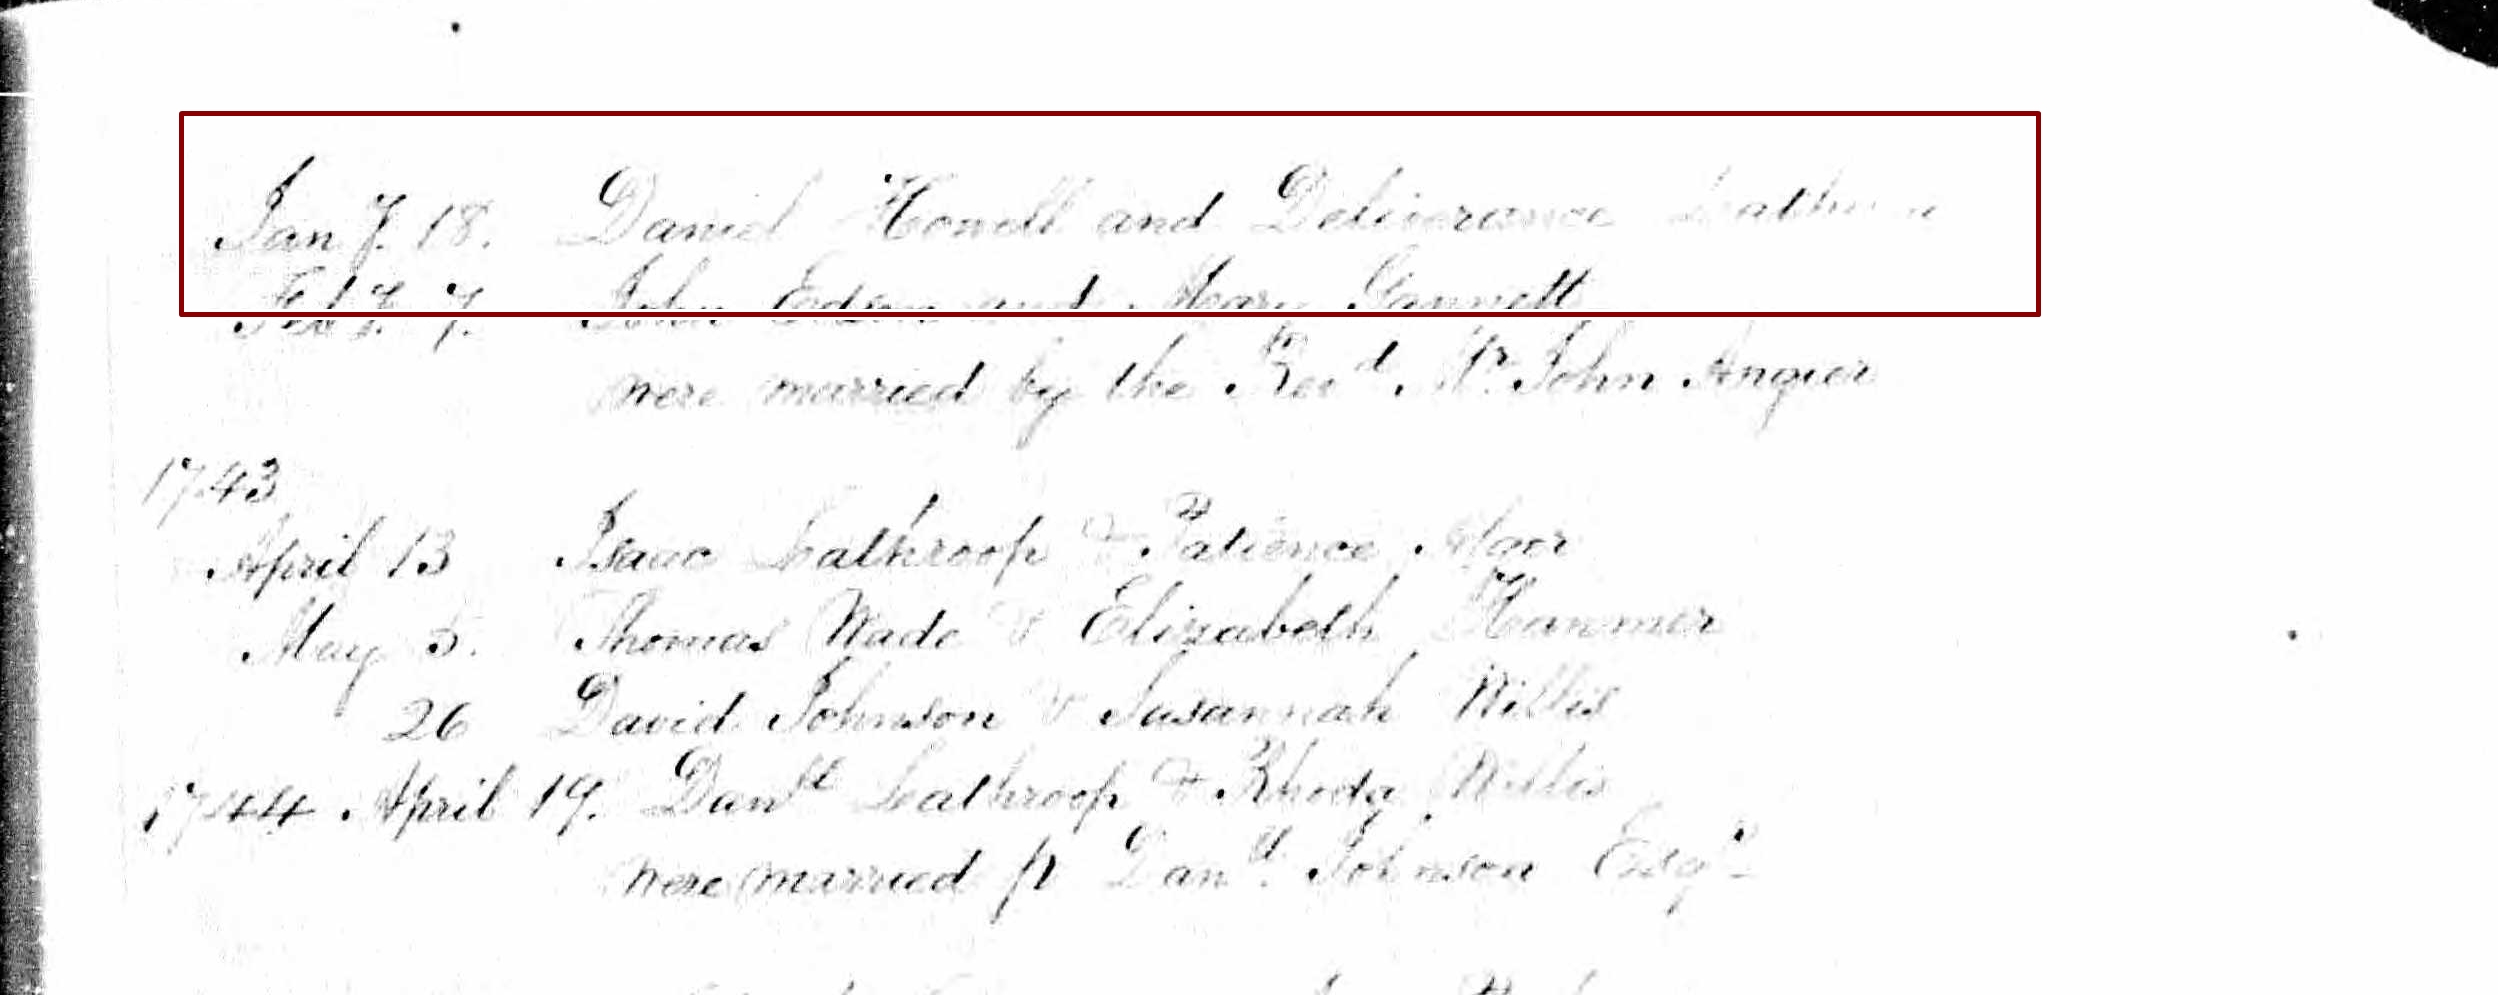 Jan y. 18. Daniel Howell and Deliverance
Feb y. 7. John Edson and Mary Gannett
were married by the Rev d. Mr. John Angier
1743
April 13 Isaac Lathroop & Patience Alger
May 5. Thomas Wade & Elizabeth Hanmer
26 David Johnson & Susannah Willis
1744 April 19. Dan ll Lathroop & Rhoda Willis
were married p Dan ll. Johnson Esq r